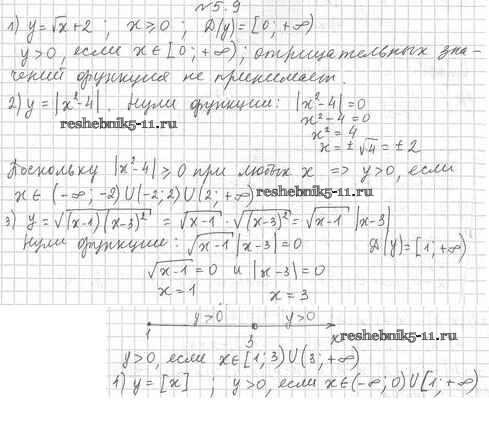 №5.9
1) y=√x+2 ; x⩾0 ; D(y)=[0;+∞)
y>0, если x∈[0;+∞); отрицательных зна-
чений функция не принимает.
2) y=|x²-4|. Нули функции: |x²-4|=0
x²-4=0
reshebnik5-11.ru
x²=4
x=±√4=±2
Поскольку |x²-4|⩾0 при любых x ⇒ y>0, если
x∈(-∞;-2)∪(-2;2)∪(2;+∞) reshebnik5-11.ru
3) y=√(x-1)(x-3)² = √x-1 · √(x-3)² = √x-1 |x-3|
Нули функции: √x-1 |x-3|=0 D(y)=[1;+∞)
√x-1=0 и |x-3|=0
x=1 x=3
y>0 y>0
1 3 x
reshebnik5-11.ru
y>0, если x∈[1;3)∪(3;+∞)
1) y=[x] ; y>0, если x∈(-∞;0)∪[1;+∞)